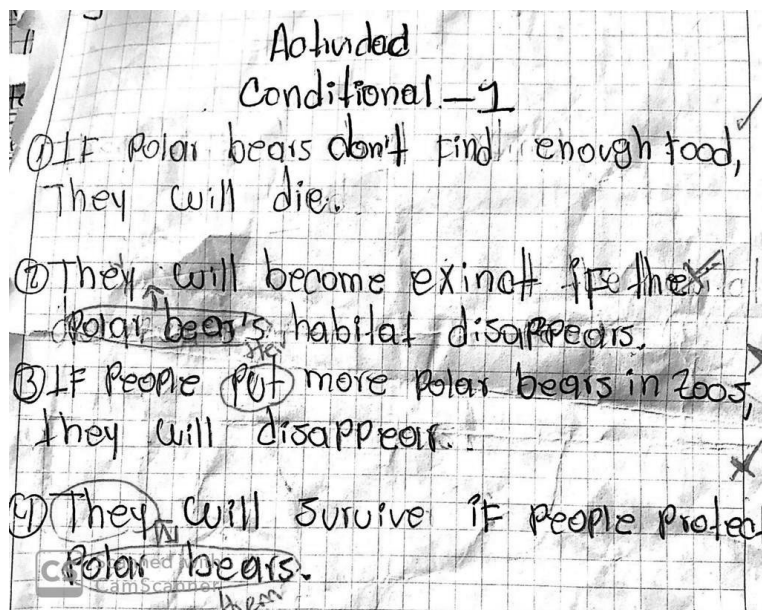 Actividad
Conditional - 1
① IF Polar bears don't find enough food,
They will die.
② They will become exinct if the
Polar bear's habitat disappears.
③ IF People put more Polar bears in zoos,
they will disappear.
④ They will survive if people protec
Polar bears.
them
CS Scanned with
CamScanner